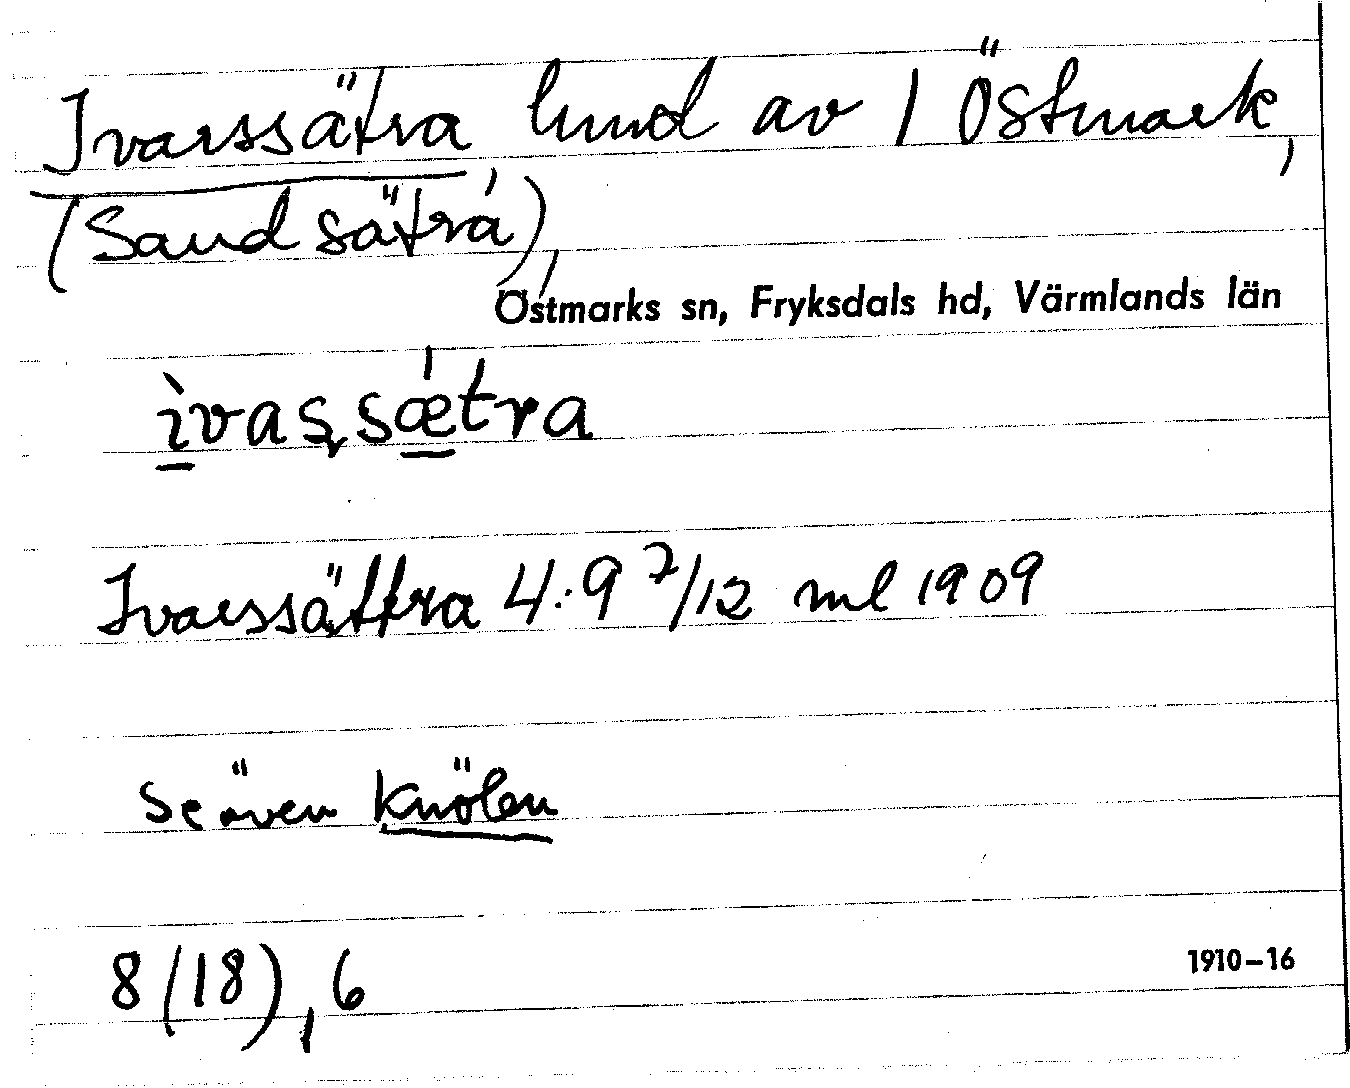 Ivarssätra, hmd av 1 Östmark,
(Sandsätra),
Östmarks sn, Fryksdals hd, Värmlands län
ìvas,sǽtra
Ivarssättra 4:9 7/12 ml 1909
Se även Knölen
8(18),6
1910-16